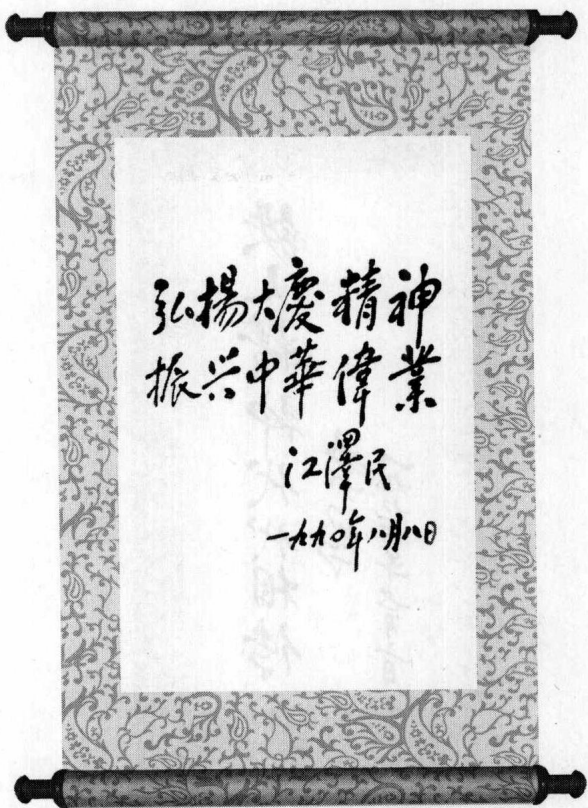 弘揚大慶精神
振兴中華偉業
江澤民
一九九〇年八月八日